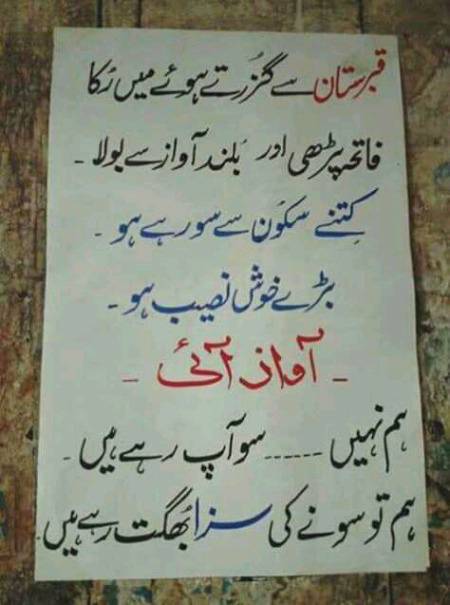 قبرستان سے گزرتے ہوئے میں رُکا
فاتحہ پڑھی اور بلند آواز سے بولا ۔
کِتنے سکون سے سو رہے ہو ۔
بڑے خوش نصیب ہو ۔
۔ آواز آئی ۔
ہم نہیں ۔۔۔۔۔۔ سو آپ رہے ہیں ۔
ہم تو سونے کی سزا بُھگت رہے ہیں ۔